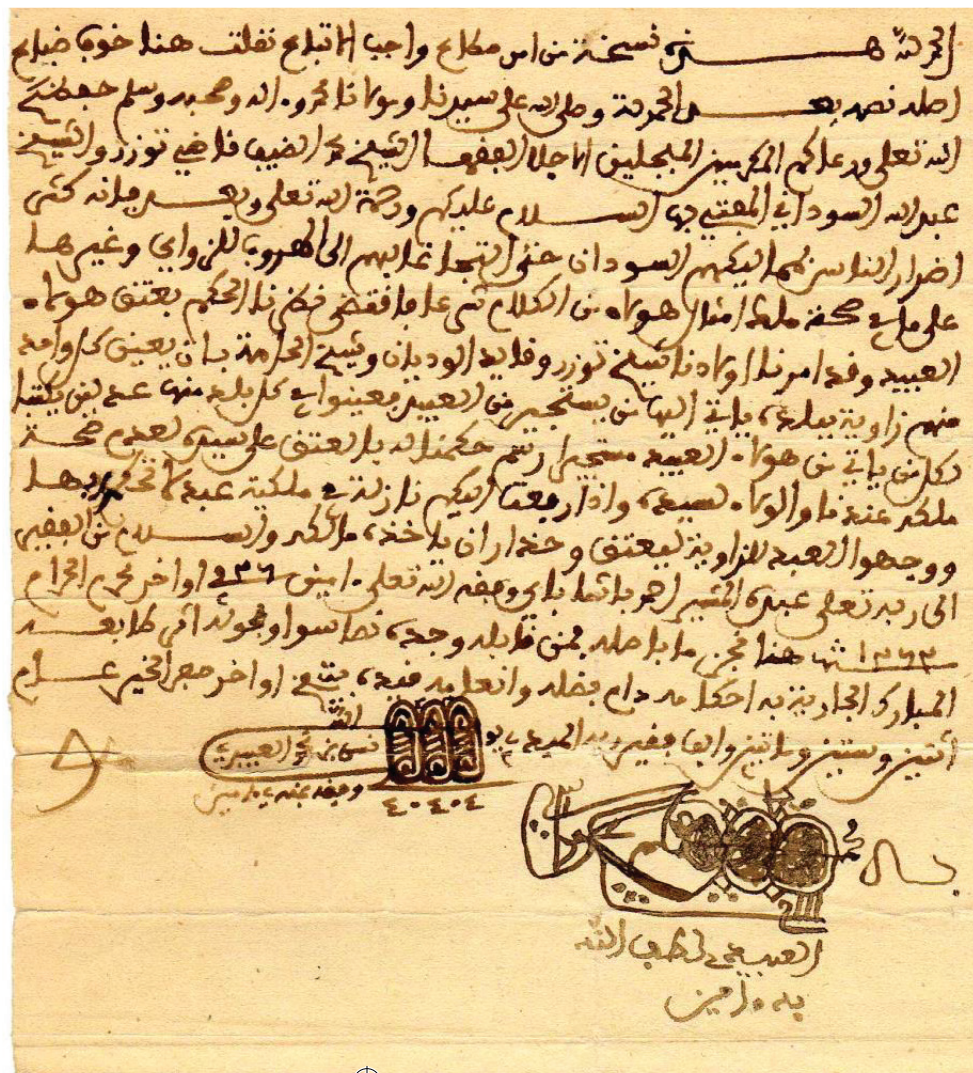 الحمد لله هذه نسخة من امر مطاع واجب الاتباع نقلت هنا خوف ضياع
اصله نصه بعد الحمدلة وصلى الله على سيدنا ومولانا محمد واله وصحبه وسلم حفظكم
الله تعلى ورعاكم المكرمين المبجلين الاجلا الفقها الشيخ محمد الضيف قاضي توزر والشيخ
عبد الله السوداني المفتي بها السلام عليكم ورحمة الله تعلى وبعد فانه كثر
اضرار الناس بمماليكهم السودان حتى التجا غالبهم الى الهروب للزوايا وغيرها
على ما في صحة ملك امثال هولاء من الكلام شرعا فاقتضى نظرنا الحكم بعتق هولاء
العبيد وقد امرنا اولادنا شيخ توزر وقايد الوديان وشيخ الحامة بان يعين كل واحد
منهم زاوية ببلده ياتي اليها من يستجير من العبيد فعينوا في كل بلد منها عدلين يكتبا
لكل من ياتي من هولاء العبيد مستجيرا رسم حكمنا له بالعتق على سيده لعدم صحة
ملكه عندنا والولاء لسيده واذا رفعت اليكم نازلة في ملكية عبد لا تحكموا بها
ووجهوا العبد للزاوية ليعتق وحذار ان ياخذه مالكه والسلام من الفقير
الى ربه تعلى عبده المشير احمد باشا باي وفقه الله تعلى امين في اواخر محرم الحرام
١٢٦٢ هنا فمن قابله وجده نصا سواء
المبارك الجارية به احكامه دام فضله وانعامه قيده اواخر صفر الخير عام
اثنين وستين وماتين والف فقير ربه
وفقه بمنه امين
٤٠٤٠٤
الله
به امين